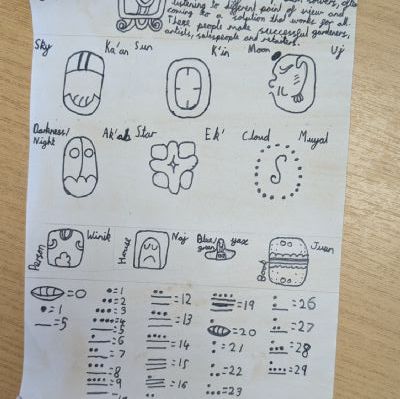 listening to different point of view and
coming to a solution that works for all.
These people make successful gardeners,
artists, salespeople and retailers.
Sky Ka'an Sun K'in Moon Uj
Darkness/
Night Ak'ab Star Ek' Cloud Muyal
Person Winik House Naj Blue/
green yax Book Juun
=0 =1 =12 =19 =26
=1 =2 =13 =20 =27
=5 =3 =14 =21 =28
=4 =15 =22 =29
=5 =16 =23
=6
=7
=8
=9